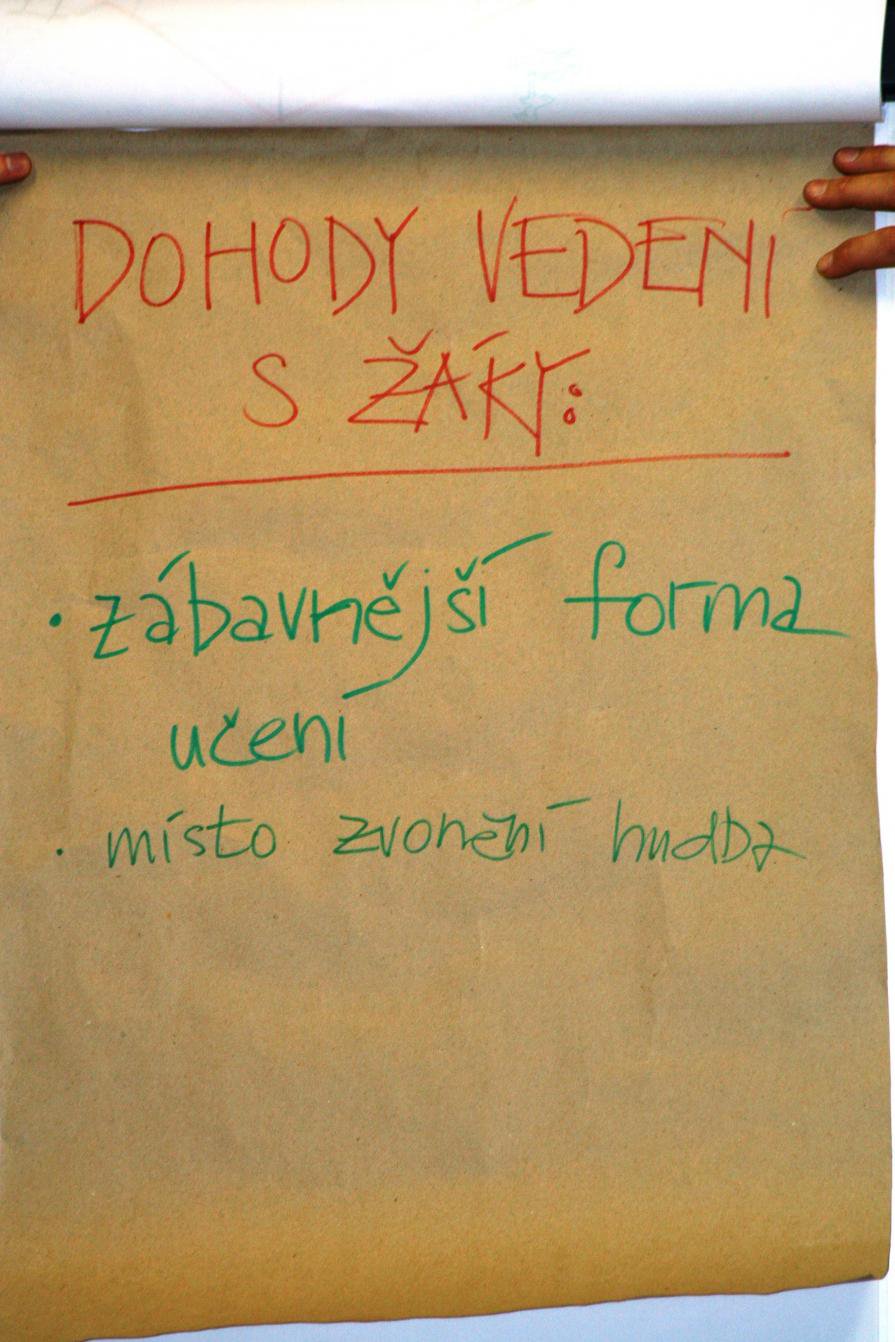 DOHODY VEDENÍ
S ŽÁKY:
• zábavnější forma
učení
• místo zvonění hudba